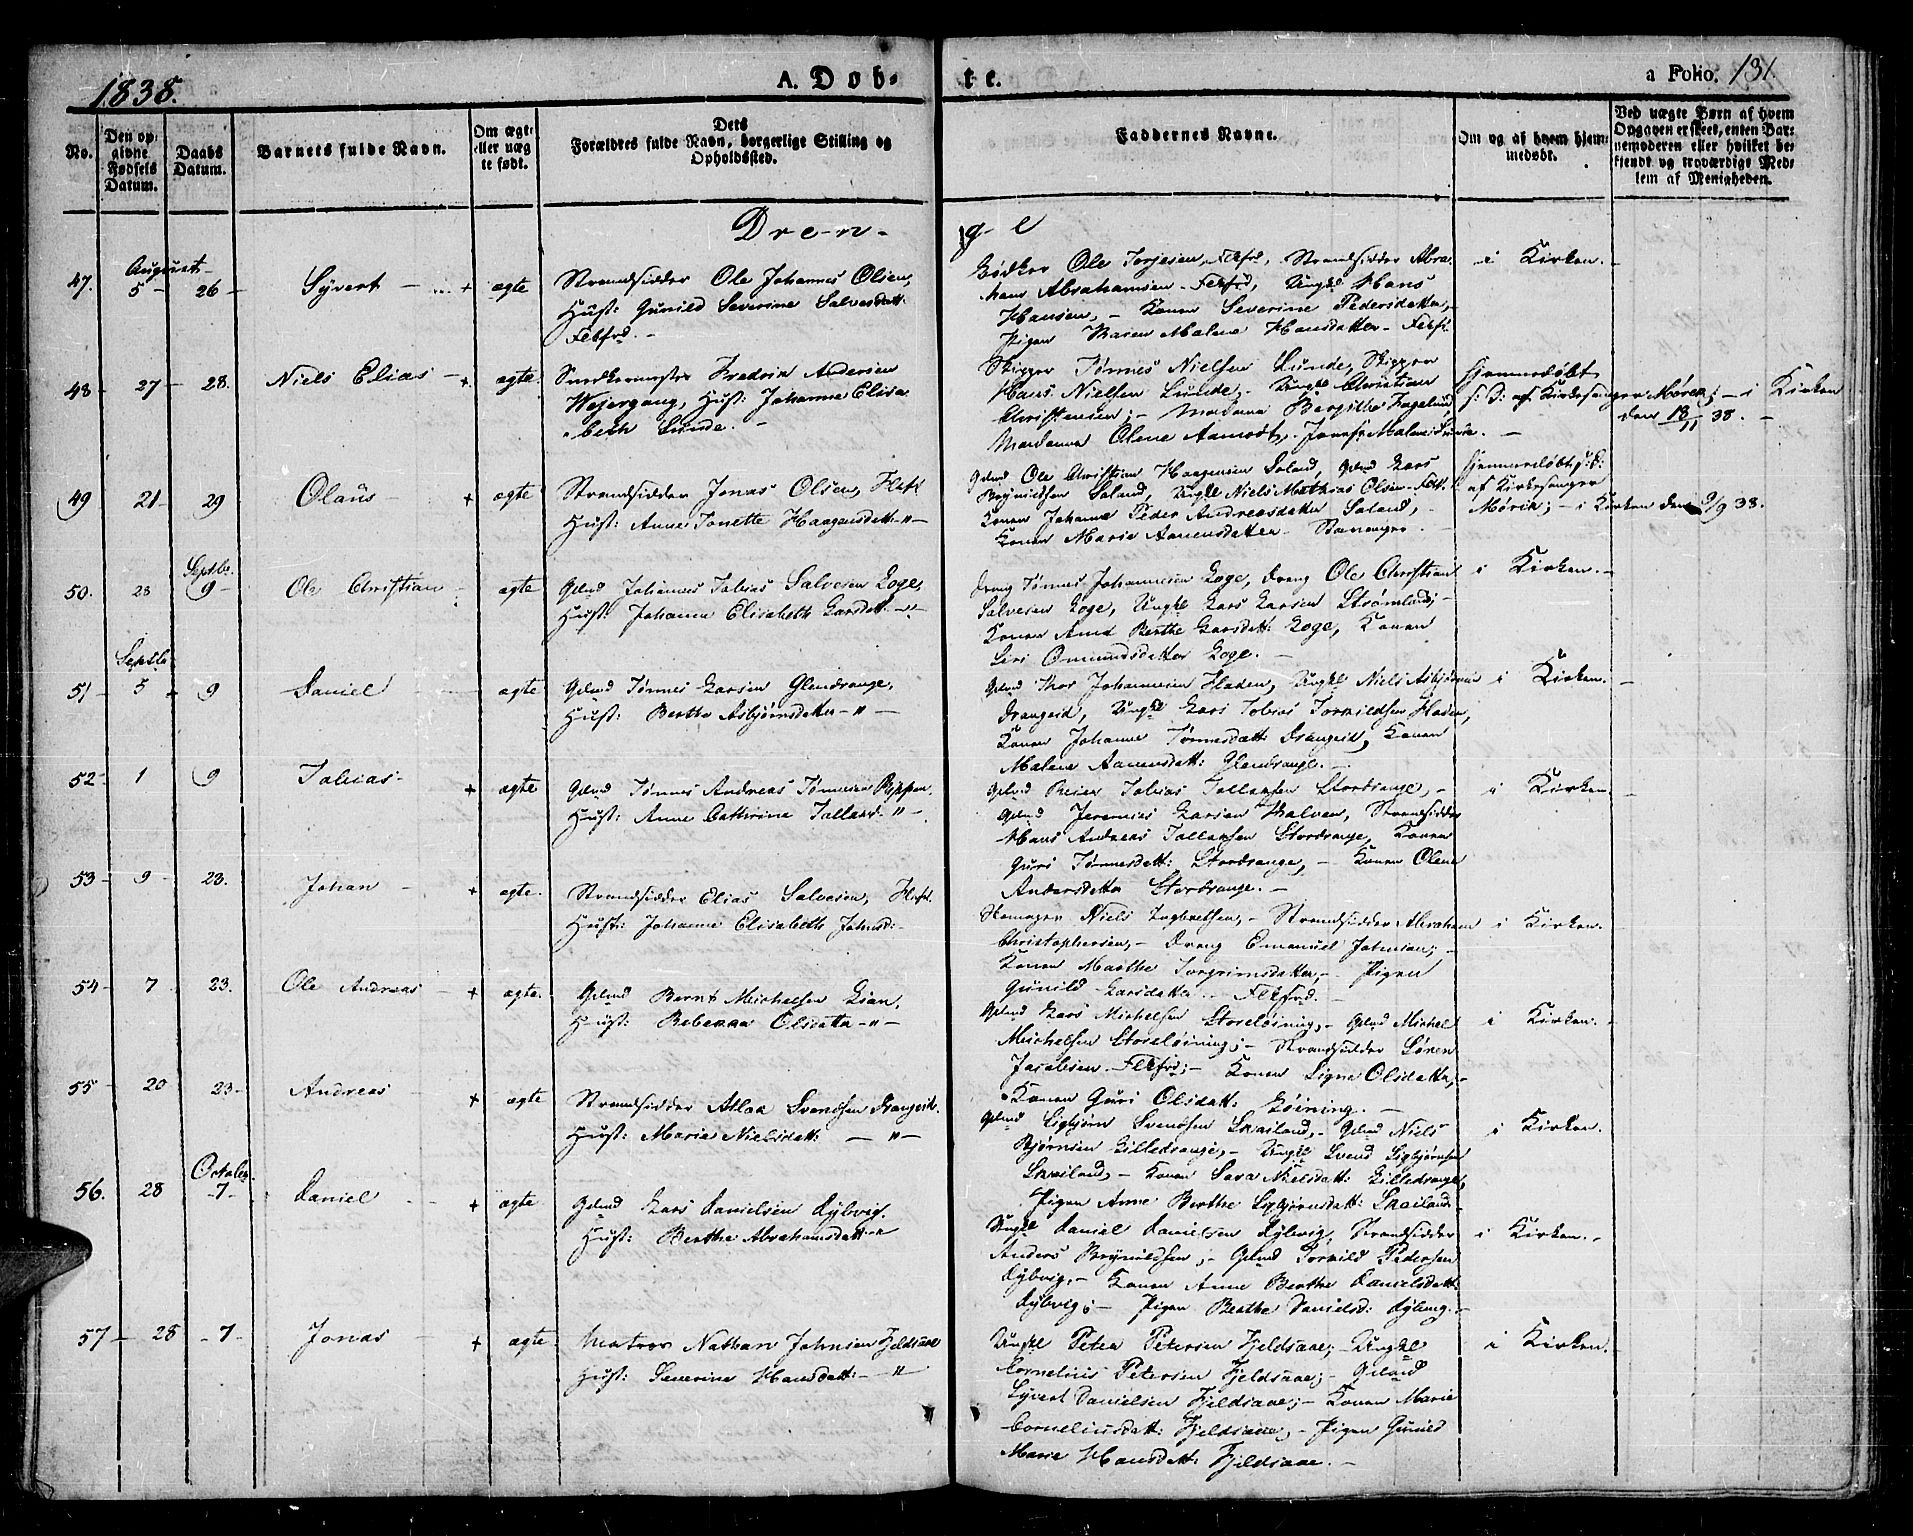 1838.
A. Døb-
te.
a Folio. 131.
No.
Den op-
givne
Fødsels
Datum.
Daabs
Datum.
Barnets fulde Navn.
Om ægte
eller uæg-
te født.
Dets
Forældres fulde Navn, borgerlige Stilling og
Opholdssted.
Faddernes Navne.
Om og af hvem hjem-
medøbt.
Ved uægte Børn af hvem
Opgaven er skeet, enten Bar-
nemoderen eller hvilket be-
kjendt og troværdige Med-
lem af Menigheden.
Dren-
ge
47. August 5 - 26 - Syvert - + ægte
Strandsidder Ole Johannes Olsen,
Hust: Gunild Severine Salvesdatt:
Flkfrd. -
Bødker Ole Torjesen, Flkfrd, Strandsidder Abra-
ham Abrahamsen Flkfrd, Ungkl Hans
Hansen, - Konen Severine Pedersdatter,
Pigen Maren Malene Hansdatter - Flkf.
i Kirken. -
48 - 27 - 28. Niels Elias - + ægte.
Snedkermester Fredrik Andersen
Wejergang, Hust: Johanne Elisa-
beth Lunde. -
Skipper Tønnes Nielsen Lunde, Skipper
Hans Nielsen Lunde, - Ungkl Christian
Christensen; - Madame Bergithe
Madame Olene Aamodt, Jomfr Malene Lunde.
Hjemmedøbt
s: D: af Kirkesanger Mørch; - i Kirken
den 18/11 38. -
49 21 - 29 Olaus - + ægte
Strandsidder Jonas Olsen, Flkf
Hust: Anne Tonette Haagensdatt: " -
Gdmd Ole Christian Haagensen Loland, Gdmd Lars
Brynildsen Loland, Ungkl Niels Mathias Olsen - Flkf.
Konen Johanne Peder Andreasdatter Loland,
Konen Marie Aanensdatter Stavanger -
Hjemmedøbt s: d:
af Kirkesanger
Mørch; - i Kirken den 9/9 38.
50. 23 Septbr. 9 - Ole Christian - ægte
Gdmd Johannes Tobias Salvesen Loge,
Hust: Johanne Elisabeth Larsdatt: "
Dreng Tønnes Johannesen Loge, Dreng Ole Christian
Salvesen Loge, Ungkl Lars Larsen Strømland;
Konen Anne Berthe Larsdatt: Loge, Konen
Siri Omundsdatter Loge. -
i Kirken. -
51 - Septbr 5 - 9 Daniel ægte
Gdmd Tønnes Larsen Glendrange,
Hust: Berthe Asbjørnsdatter " -
Gdmd Thor Johannesen Fladen, Ungkl Niels Asbjørnsen
Drangeid, Ungkl Lars Tobias Torkildsen Fladen,
Konen Johanne Tønnesdatt: Drangeid, Konen
Malene Aanensdatt: Glendrange. -
i Kirken. -
52 - 1 9 Tobias - + ægte
Gdmd Tønnes Andreas Tønnesen Beppen.
Hust: Anne Cathrine Tollaks " -
Gdmd Reier Tobias Tollaksen Stordrange, -
Gdmd Jeremias Larsen Halven, Strandsidder
Hans Andreas Tollaksen Stordrange, Konen
Guri Tønnesdatt: Stordrange, - Konen Olene
Andersdatter Stordrange. -
i Kirken. -
53 - 9 23. Johan - + ægte.
Strandsidder Elias Salvesen, Flkf.
Hust: Johanne Elisabeth Johnsd: -
Skomager Niels Ingbretsen, - Strandsidder Abraham
Christophersen, - Dreng Emanuel Johnsen; -
Konen Marthe Torgrimsdatter, - Pigen
Gunild Larsdatter - Flkfrd. -
i Kirken. -
54 - 7 23. Ole Andreas - + ægte.
Gdmd Bernt Michelsen Lian,
Hust: Rebekka Olsdatter " -
Gdmd Lars Michelsen Storeløining, - Gdmd Michel
Michelsen Storeløining; - Strandsidder Søren
Jacobsen Flkfrd; - Konen Signe Olsdatter, -
Konen Guri Olsdatt: Løining. -
i Kirken. -
55 - 20 23 - Andreas - + ægte
Strandsidder Atlak Svendsen Drangeid.
Hust: Marie Nielsdatt: - " -
Gdmd Sigbjørn Svendsen Skailand, - Gdmd Niels
Bjørnsen Lilledrange, - Ungkl Svend Sigbjørnsen
Skailand, - Konen Sara Nielsdatt: Lilledrange,
Pigen Anne Berthe Sigbjørnsdatt: Skailand. -
i Kirken.
56. 28 October - 7 - Daniel - + ægte
Gdmd Lars Danielsen Dybvig.
Hust: Berthe Abrahamsdatt: "
Ungkl Daniel Danielsen Dybvig, Strandsidder
Anders Brynildsen, - Gdmd Torkild Pedersen
Dybvig, - Konen Anne Berthe Danielsdatt:
Dybvig; - Pigen Berthe Danielsd: Dybvig. -
i Kirken. -
57 - 28 - 7 - Jonas - + ægte
Matros Nathan Johnsen Fjeldsaae
Hust: Severine Hansdatt: - "
Ungkl Peter Petersen Fjeldsaae, Ungkl
Cornelius Petersen Fjeldsaae; - Gdmd
Syvert Danielsen Fjeldsaae; - Konen Marie
Corneliusdatt: Fjeldsaae, - Pigen Gunild
Marie Hansdatt: Fjeldsaae. -
i Kirken. -